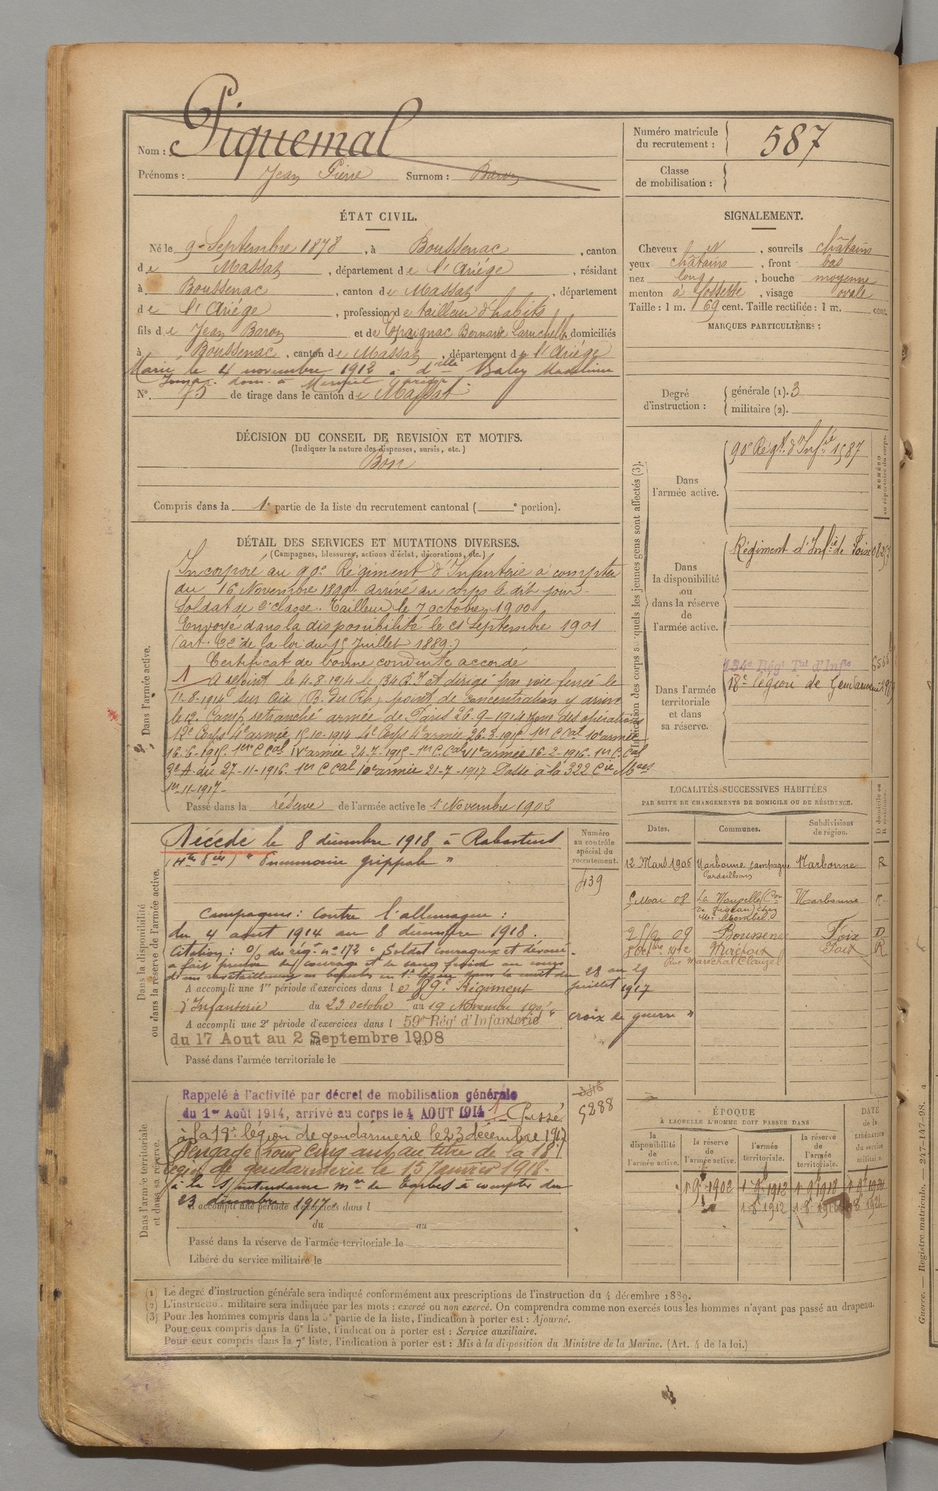 Nom : Piquemal
Prénoms : Jean Pierre Surnom : Baron
Numéro matricule du recrutement : 587
Classe de mobilisation :
ÉTAT CIVIL.
Né le 9 Septembre 1878, à Boussenac, canton
de Massat, département de l'Ariége, résidant
à Boussenac, canton de Massat, département
de l'Ariége, profession de tailleur d'habits
fils de Jean Baron et de Bernard domiciliés
à Boussenac, canton de Massat, département de l'Ariége
Marié le 4 novembre 1912 à dlle Madeleine
N° 75 de tirage dans le canton de Massat
SIGNALEMENT.
Cheveux et, sourcils châtains
yeux châtains, front bas
nez long, bouche moyenne
menton à fossette, visage ovale
Taille : 1 m. 69 cent. Taille rectifiée : 1 m. cent.
MARQUES PARTICULIÈRES :
Degré d'instruction : générale (1). 3
militaire (2).
DÉCISION DU CONSEIL DE REVISION ET MOTIFS.
(Indiquer la nature des dispenses, sursis, etc.)
Bon
Compris dans la 1e partie de la liste du recrutement cantonal ( ° portion).
DÉTAIL DES SERVICES ET MUTATIONS DIVERSES.
(Campagnes, blessures, actions d'éclat, décorations, etc.)
Dans l'armée active.
Incorporé au 90e Régiment d'Infanterie à compter
du 16 Novembre 1899 arrivé au corps le dit jour.
Soldat de 2e classe. Tailleur le 7 octobre 1900.
Envoyé dans la disponibilité le 21 septembre 1901
(art. 22 de la loi du 15 Juillet 1889)
Certificat de bonne conduite accordé
1 A rejoint le 4.8.1914 le 134 R.T. et dirigé par voie ferrée le
11-8-1914 sur Aix (B. du Rh.) point de concentration y arrivé
le 12. Camp retranché armée de Paris 26-9-1914 zone des opérations
4e armée 15-10-1914 4e Corps 4e armée 26.3.1915 1er C Cal 10e armée
16-6-1915 1er C Cal armée 24-7-1915 1er C Cal VIe armée 16-2-1916 1er C Cal
3e A du 27-11-1916 1er C Cal 10e armée 21-7-1917 Passé à la 322 Cie
1er-11-1917
Passé dans la réserve de l'armée active le 1 Novembre 1902
Indication des corps auxquels les jeunes gens sont affectés (3).
Dans l'armée active. 90e Régt d'Infie 1587
Dans la disponibilité ou dans la réserve de l'armée active. Régiment d'Infie de Foix
Dans l'armée territoriale et dans sa réserve. 134e Régt Tal d'Infie
18e légion de Gendarmerie
LOCALITÉS SUCCESSIVES HABITÉES
PAR SUITE DE CHANGEMENTS DE DOMICILE OU DE RÉSIDENCE.
Dates. Communes. Subdivisions de région.
12 Mars 1906 Narbonne campagne Narbonne R
5 Mai 08 Narbonne
09 Boussenac Foix D
1912 Mirepoix Foix R
rue Maréchal Clauzel
Dans la disponibilité ou dans la réserve de l'armée active.
Décédé le 8 décembre 1918 à Rabastens
(Htes Pées) "Pneumonie grippale"
Campagnes : contre l'allemagne :
du 4 aout 1914 au 8 décembre 1918.
Citation : O/ du régt n° 172 "Soldat courageux et dévoué
a fait preuve de courage et de sang froid au cours
d'un ravitaillement en 1re ligne dans la nuit du 28 au 29
juillet 1917
"croix de guerre"
Numéro au contrôle spécial du recrutement.
439
A accompli une 1re période d'exercices dans le 89e Régiment
d'Infanterie du 23 octobre au 19 Novembre
A accompli une 2e période d'exercices dans l 59e Régt d'Infanterie
du 17 Aout au 2 Septembre 1908
Passé dans l'armée territoriale le
Dans l'armée territoriale et dans sa réserve.
Rappelé à l'activité par décret de mobilisation générale
du 1er Août 1914, arrivé au corps le 4 AOUT 1914 1 Passé
à la 17e légion de gendarmerie le 23 décembre 1917
Rengagé pour cinq ans au titre de la 18e
légion de gendarmerie le 15 Janvier 1918.
à compter du
23 décembre 1917
5288
A accompli une période d'exercices dans l
du au
Passé dans la réserve de l'armée territoriale le
Libéré du service militaire le
ÉPOQUE
À LAQUELLE L'HOMME DOIT PASSER DANS
la disponibilité de l'armée active. la réserve de l'armée active. l'armée territoriale. la réserve de l'armée territoriale.
DATE de la LIBÉRATION du service militaire.
(1) Le degré d'instruction générale sera indiqué conformément aux prescriptions de l'instruction du 4 décembre 1889.
(2) L'instruction militaire sera indiquée par les mots : exercé ou non exercé. On comprendra comme non exercés tous les hommes n'ayant pas passé au drapeau.
(3) Pour les hommes compris dans la 5e partie de la liste, l'indication à porter est : Ajourné.
Pour ceux compris dans la 6e liste, l'indication à porter est : Service auxiliaire.
Pour ceux compris dans la 7e liste, l'indication à porter est : Mis à la disposition du Ministre de la Marine. (Art. 4 de la loi.)
Guerre. — Registre matricule. — 247-147-98.